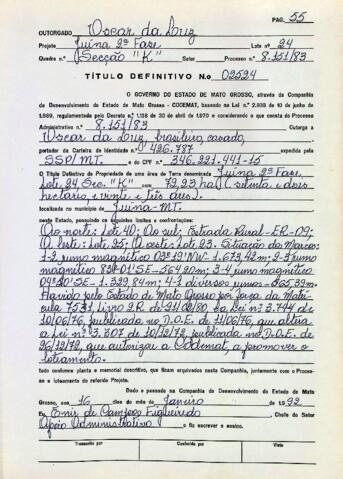 PAG. 55
OUTORGADO Oscar da Luz
Projeto Juina 2ª Fase Lote nº 24
Quadra nº (Secção "K") Processo nº 8.151/83
TÍTULO DEFINITIVO N.o 02524
O GOVERNO DO ESTADO DE MATO GROSSO, através da Companhia
de Desenvolvimento do Estado de Mato Grosso - CODEMAT, baseado na Lei n.º 2.939 de 10 de junho de
1.969, regulamentada pelo Decreto n.º 1.138 de 30 de abril de 1970 e considerando o que consta do Processo
Administrativo n.º 8.151/83 Outorga a
Oscar da Luz, brasileiro, casado,
portador da Carteira de Identidade n.º 426.787 expedida pela
SSP/MT. e do CPF n.º 346.221.441-15
O Título Definitivo de Propriedade de uma área de Terra denominada Juina 2ª Fase,
Lote 24, Sec. "K" com 72,23 ha (setenta e dois
hectario, e vinte e três ares).
localizada no município de Juina-MT.
neste Estado, possuindo os seguintes limites e confrontações:
Ao norte: Lote 40; Ao sul: Estrada Rural-ER-09;
A leste: Lote 25; A oeste: Lote 23. Situação do Marcos:
1-2, rumo magnético 03º19'NW-1.673,42m; 2-3 rumo
magnético 83º01'SE-564,20m; 3-4 rumo magnético
04º20'SE-1.329,84m; 4-1 diversos rumos-565,39m.
Havido pelo Estado de Mato Grosso por força da Matri-
cula 7531, Livro 2R, de 21/02/80. Da Lei nº 3.744 de
10/06/76, publicada no D.O.E. de 11/06/76, que altera
a Lei nº 3.307 de 10/12/72, publicada no D.O.E. de
26/12/72, que autoriza a Codemat, a promover o
loteamento.
tudo conforme planta e memorial descritivo, que ficam arquivados nesta Companhia, juntamente com o Proces-
so e loteamento do referido Projeto.
Dado e passado na Companhia de Desenvolvimento do Estado de Mato
Grosso, aos 16 dias do mês de Janeiro de 1.992
Eu, Enir de Campos Figueiredo, Chefe do Setor
Apoio Administrativo o fiz escrever e assino.
Transcrito por
Conferido por
Visto